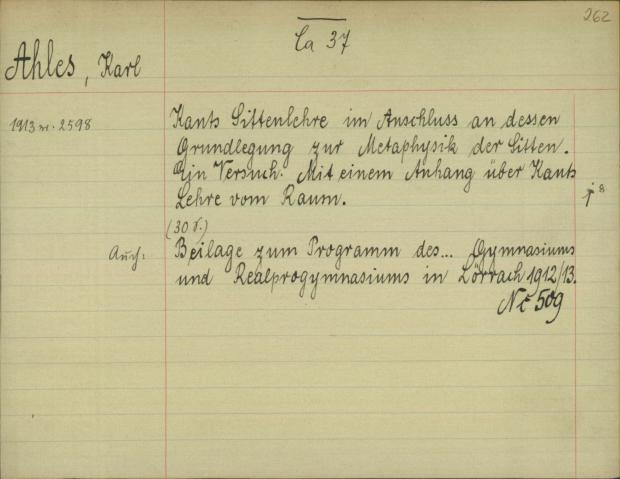 262
Ca 37
Ahles, Karl
1913 W. 2598
Kants Sittenlehre im Anschluss an dessen
Grundlegung zur Metaphysik der Sitten.
Ein Versuch. Mit einem Anhang über Kants
Lehre vom Raum.
8
(30 S.)
Auch: Beilage zum Programm des... Gymnasiums
und Realprogymnasiums in Lörrach 1912/13.
Nr 509